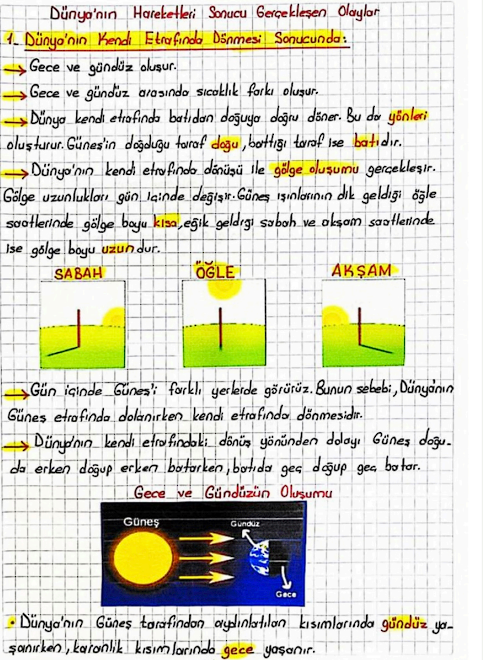 Dünya'nın Hareketleri Sonucu Gerçekleşen Olaylar
1. Dünya'nın Kendi Etrafında Dönmesi Sonucunda:
→ Gece ve gündüz oluşur.
→ Gece ve gündüz arasında sıcaklık farkı oluşur.
→ Dünya kendi etrafında batıdan doğuya doğru döner. Bu da yönleri
oluşturur. Güneş'in doğduğu taraf doğu, battığı taraf ise batıdır.
→ Dünya'nın kendi etrafında dönüşü ile gölge oluşumu gerçekleşir.
Gölge uzunlukları gün içinde değişir. Güneş ışınlarının dik geldiği öğle
saatlerinde gölge boyu kısa, eğik geldiği sabah ve akşam saatlerinde
ise gölge boyu uzundur.
SABAH ÖĞLE AKŞAM
→ Gün içinde Güneş'i farklı yerlerde görürüz. Bunun sebebi, Dünya'nın
Güneş etrafında dolanırken kendi etrafında dönmesidir.
→ Dünya'nın kendi etrafındaki dönüş yönünden dolayı Güneş doğu-
da erken doğup erken batarken, batıda geç doğup geç batar.
Gece ve Gündüzün Oluşumu
Güneş
Gündüz
Gece
• Dünya'nın Güneş tarafından aydınlatılan kısımlarında gündüz ya-
şanırken, karanlık kısımlarında gece yaşanır.